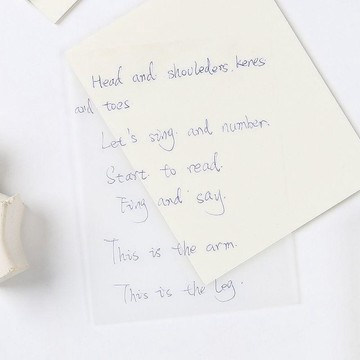 Head and shouleders. kenes
and toes
Let's sing. and number.
Start to read.
Fing and say.
This is the arm.
This is the leg.